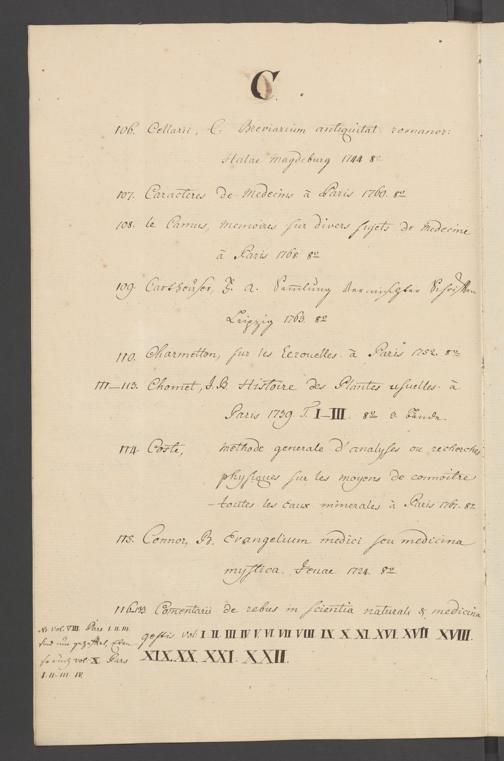 C.
106. Cellarii, C. Breviarium antiquitat: romanor:
Halae Magdeburg 1744 8º
107. Caracteres de Medecins à Paris 1760. 8º
108. le Camus, Memoires sur divers sujets de Medecine
à Paris 1760 8º
109. Cartheuser, F. A. Samlung Vermischter Schriften
Leipzig 1763. 8º
110. Charmetton, sur les Ecrouelles à Paris 1752. 8º
111—113. Chomet, J. B Histoire des Plantes usuelles à
Paris 1739. T. I–III. 8º 3 Bände
114. Coste, methode generale d'analyses ou recherches
physiques sur les moyens de connoitre
toutes les Eaux minerales à Paris 1767. 8º
115. Connor, B. Evangelium medici seu medicina
mystica. Jenae 1724. 8º
Comentarii de rebus in scientia naturali & medicina
gestis vol: I. II. III IV V VI VII VIII IX X XI. XVI. XVII XVIII.
XIX. XX. XXI. XXII.
Vol. VIII Pars I. II. III.
vol: X Pars
I. II. III. IV.